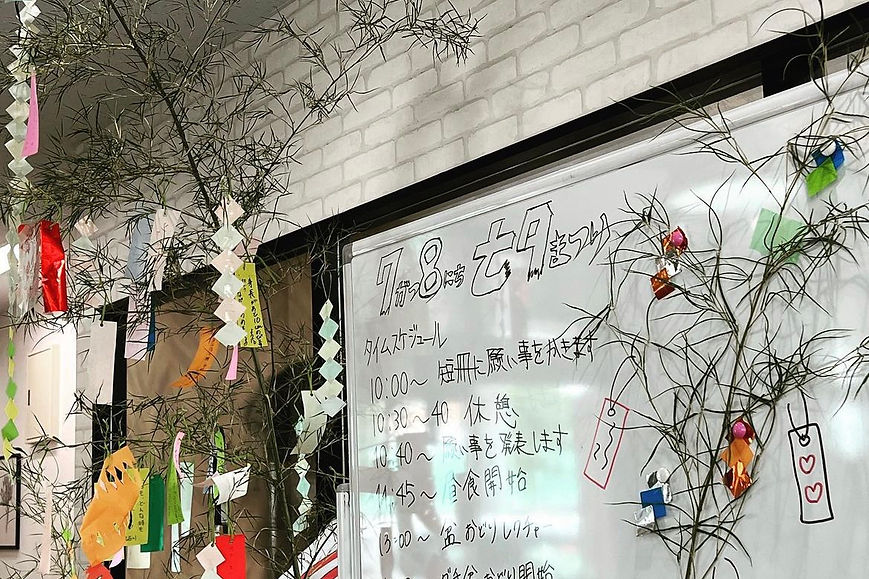 7がつ8にち 七夕まつり
タイムスケジュール
10:00～ 短冊に願い事をかきます
10:30～40 休憩
10:40～ 願い事を発表します
11:45～ 会食開始
13:00～ 盆おどりレクチャー
盆おどり開始